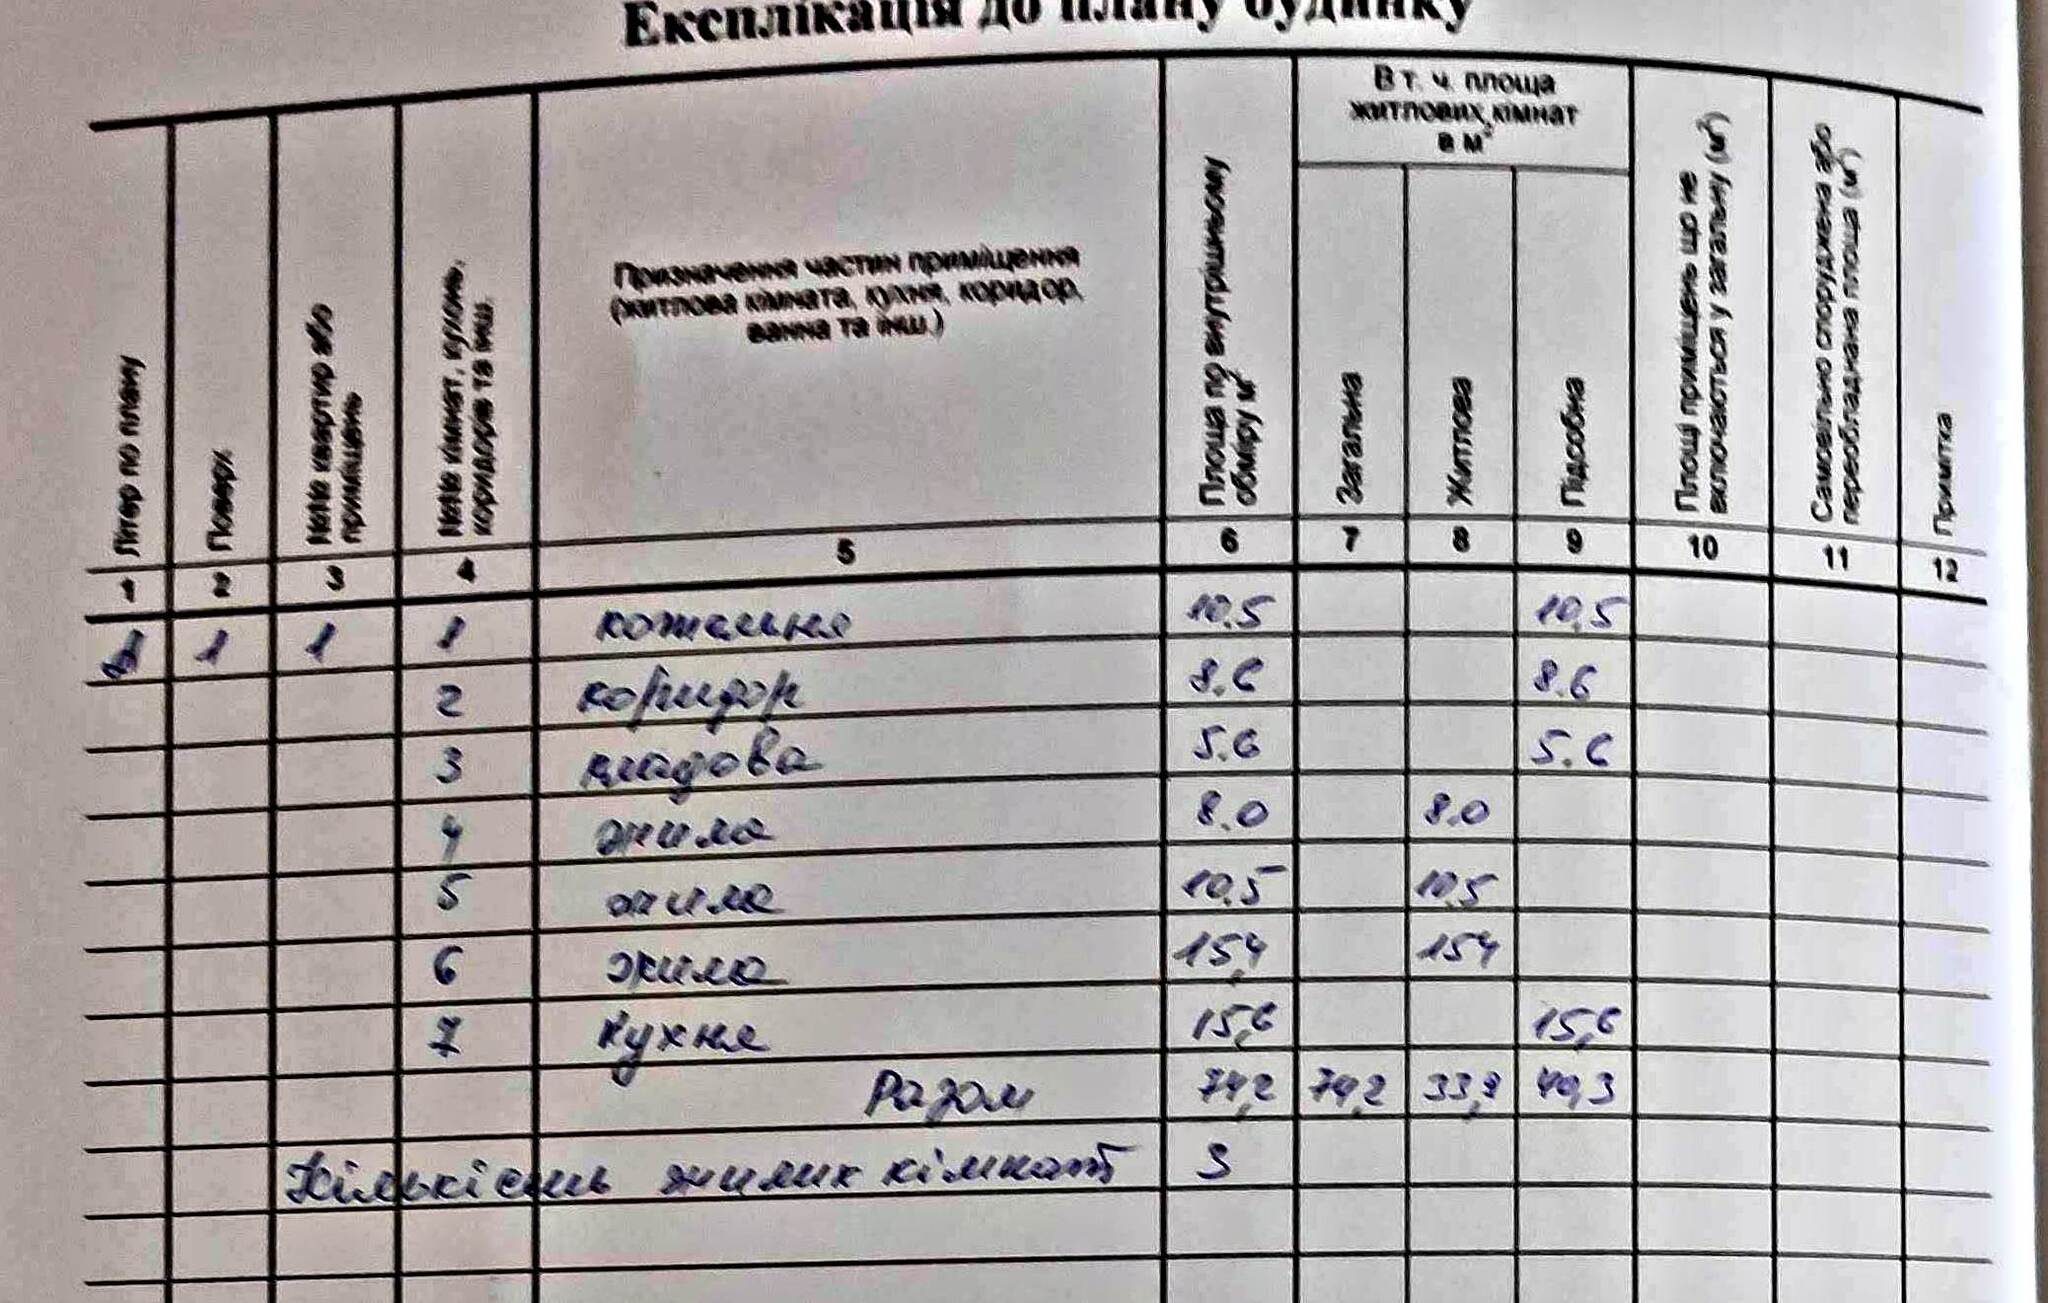 Експлікація до плану будинку
Літер по плану
Поверх
№№ квартир або
приміщень
№№ кімнат, кухонь,
коридорів та інш.
Призначення частин приміщення
(житлова кімната, кухня, коридор,
ванна та інш.)
Площа по внутрішньому
обміру м²
В т. ч. площа
житлових кімнат
в м²
Загальна
Житлова
Підсобна
Площі приміщень що не
включаються у загальну (м²)
Самовільно споруджена або
переобладнана площа (м²)
Примітка
1 2 3 4 5 6 7 8 9 10 11 12
1 1 1 котельня 10,5 10,5
2 коридор 8.6 8.6
3 кладова 5.6 5.6
4 жила 8.0 8.0
5 жила 10,5 10,5
6 жила 15,4 154
7 кухня 15,6 15,6
Разом 74,2 74,2 33,9 40,3
Кількість жилих кімнат 3